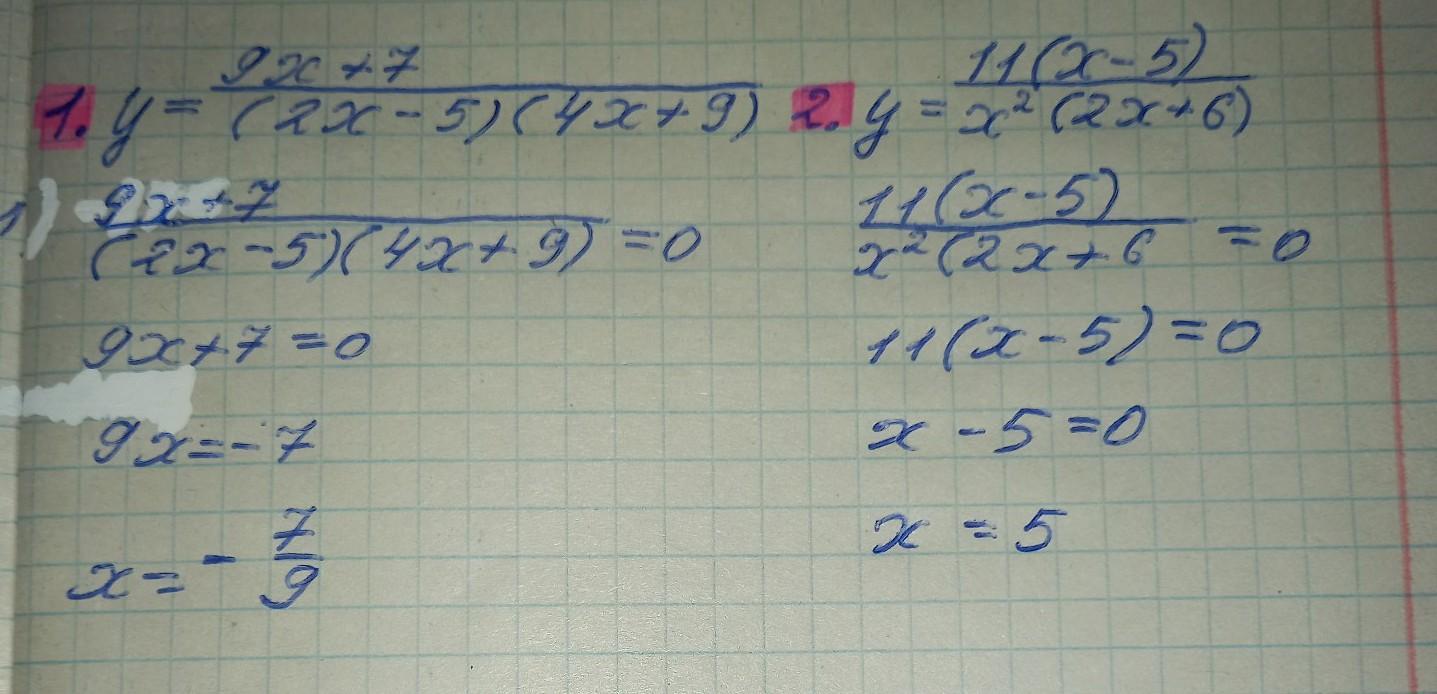 1. y = (9x+7)/((2x-5)(4x+9))
1) (9x+7)/((2x-5)(4x+9)) = 0
9x+7=0
9x=-7
x=-7/9
2. y = 11(x-5)/(x²(2x+6))
11(x-5)/(x²(2x+6 = 0
11(x-5)=0
x-5=0
x=5